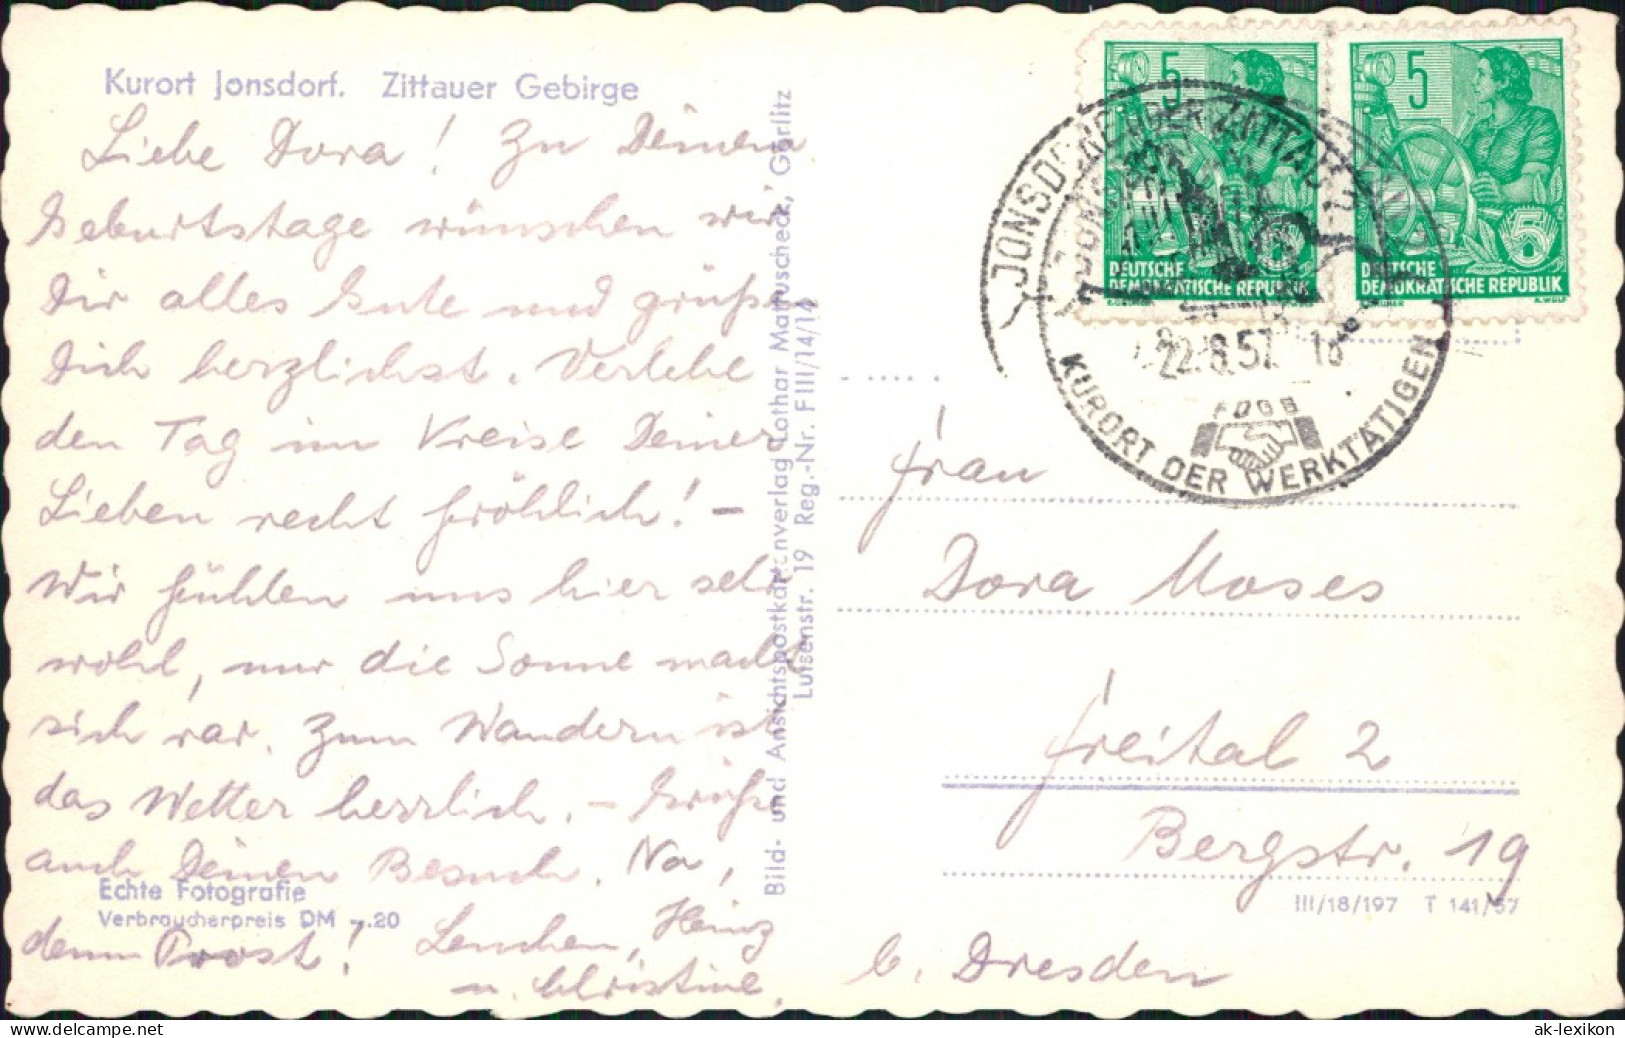 Kurort Jonsdorf. Zittauer Gebirge
Liebe Dora! Zu Deinem
Geburtstage wünschen wir
Dir alles Gute und grüßen
Dich herzlichst. Verlebe
den Tag im Kreise Deiner
Lieben recht fröhlich! –
Wir fühlen uns hier sehr
wohl, nur die Sonne macht
sich rar. Zum Wandern ist
das Wetter herrlich. – Grüße
auch Deinen Besuch. Na,
denn Prost! Lenchen, Heinz
u. Christine.
Echte Fotografie
Verbraucherpreis DM -.20
Bild- und Ansichtspostkartenverlag Lothar Mattuscheck, Görlitz
Luisenstr. 19 Reg.-Nr. F III/14/14
5
DEUTSCHE
DEMOKRATISCHE REPUBLIK
5
5
DEUTSCHE
DEMOKRATISCHE REPUBLIK
A. WOLF
JONSDORF ÜBER ZITTAU 2
22.8.57. 18
FDGB
KURORT DER WERKTÄTIGEN
Frau
Dora Moses
Freital 2
Bergstr. 19
III/18/197 T 141/57
b. Dresden
ak-lexikon